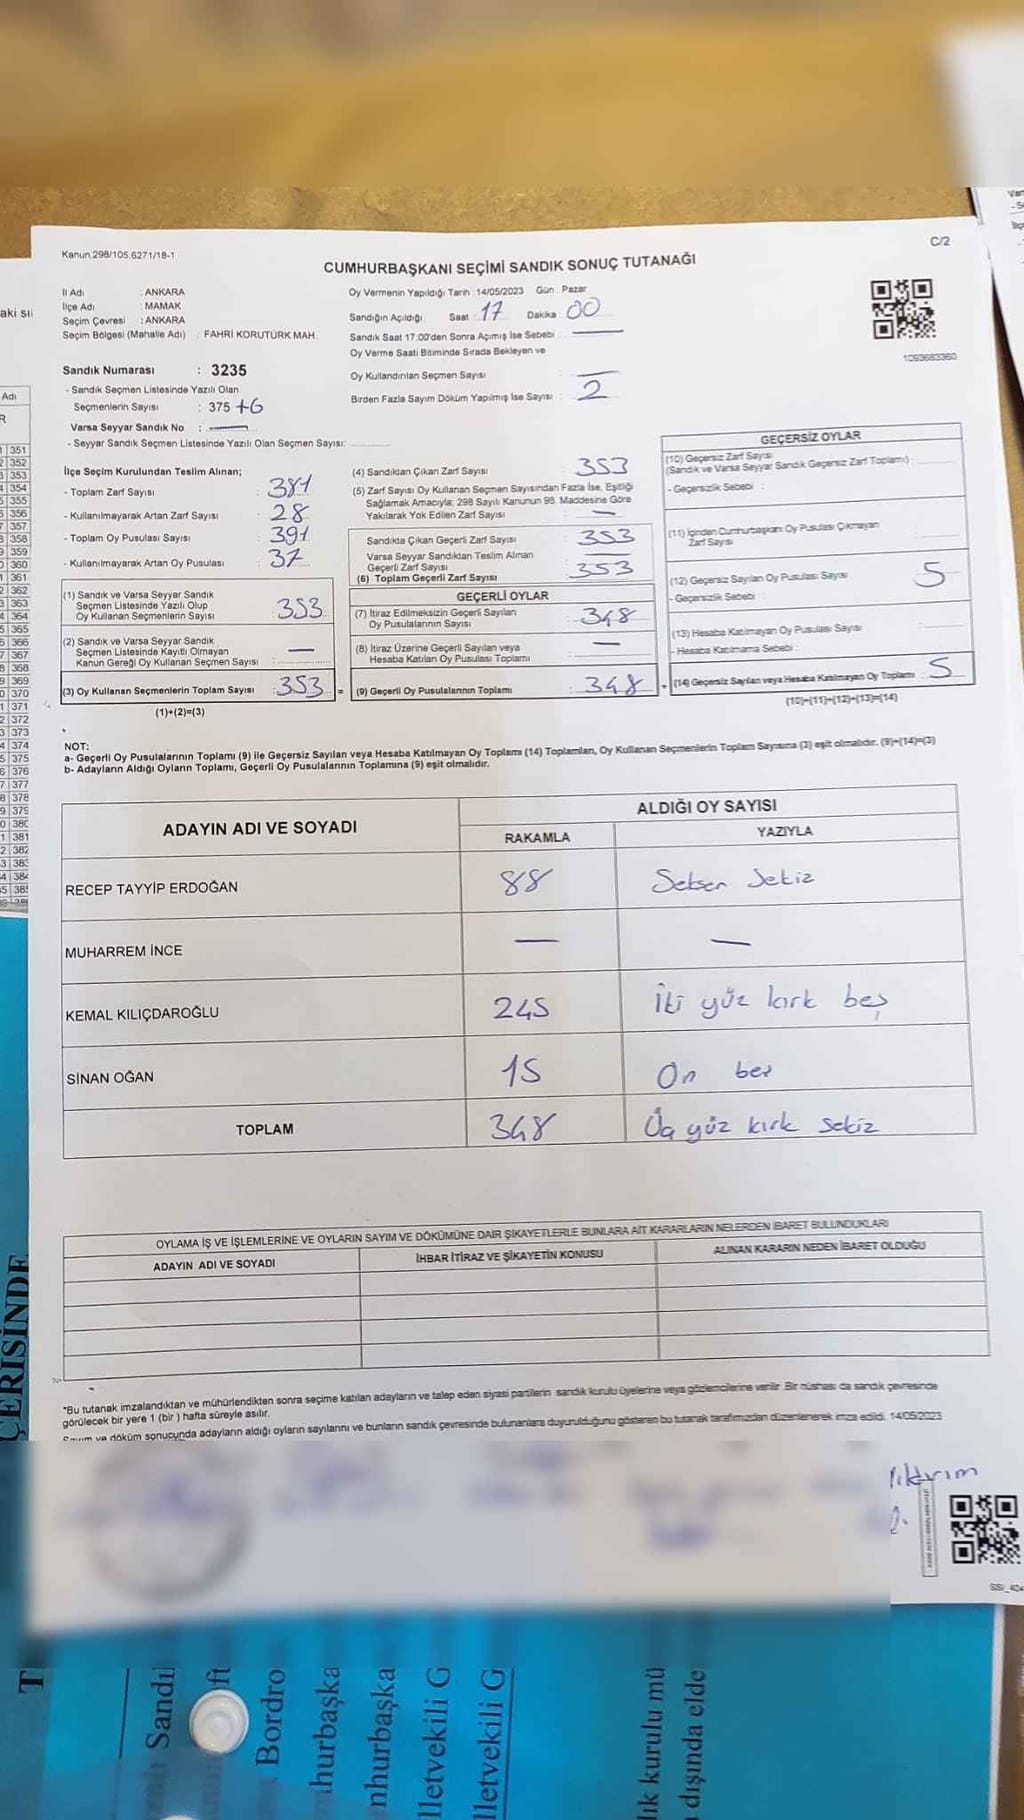 C/2
Kanun.298/105.6271/18-1
CUMHURBAŞKANI SEÇİMİ SANDIK SONUÇ TUTANAĞI
İl Adı : ANKARA
İlçe Adı : MAMAK
Seçim Çevresi : ANKARA
Seçim Bölgesi (Mahalle Adı) : FAHRİ KORUTÜRK MAH.
Oy Vermenin Yapıldığı Tarih : 14/05/2023 Gün : Pazar
Sandığın Açıldığı Saat : 17 Dakika : 00
Sandık Saat 17:00'den Sonra Açımış İse Sebebi : —
Oy Verme Saati Bitiminde Sırada Bekleyen ve
Oy Kullandırılan Seçmen Sayısı : —
Birden Fazla Sayım Döküm Yapılmış İse Sayısı : 2
1093683360
Sandık Numarası : 3235
- Sandık Seçmen Listesinde Yazılı Olan
Seçmenlerin Sayısı : 375 +6
Varsa Seyyar Sandık No : —
- Seyyar Sandık Seçmen Listesinde Yazılı Olan Seçmen Sayısı:
İlçe Seçim Kurulundan Teslim Alınan;
- Toplam Zarf Sayısı : 381
- Kullanılmayarak Artan Zarf Sayısı : 28
- Toplam Oy Pusulası Sayısı : 391
- Kullanılmayarak Artan Oy Pusulası : 37
(1) Sandık ve Varsa Seyyar Sandık
Seçmen Listesinde Yazılı Olup
Oy Kullanan Seçmenlerin Sayısı : 353
(2) Sandık ve Varsa Seyyar Sandık
Seçmen Listesinde Kayıtlı Olmayan
Kanun Gereği Oy Kullanan Seçmen Sayısı : —
(3) Oy Kullanan Seçmenlerin Toplam Sayısı : 353 =
(1)+(2)=(3)
(4) Sandıktan Çıkan Zarf Sayısı : 353
(5) Zarf Sayısı Oy Kullanan Seçmen Sayısından Fazla İse, Eşitliği
Sağlamak Amacıyla; 298 Sayılı Kanunun 98. Maddesine Göre
Yakılarak Yok Edilen Zarf Sayısı : —
Sandıkta Çıkan Geçerli Zarf Sayısı : 353
Varsa Seyyar Sandıktan Teslim Alınan
Geçerli Zarf Sayısı : —
(6) Toplam Geçerli Zarf Sayısı : 353
GEÇERLİ OYLAR
(7) İtiraz Edilmeksizin Geçerli Sayılan
Oy Pusulalarının Sayısı : 348
(8) İtiraz Üzerine Geçerli Sayılan veya
Hesaba Katılan Oy Pusulası Toplamı : —
(9) Geçerli Oy Pusulalarının Toplamı : 348 +
GEÇERSİZ OYLAR
(10) Geçersiz Zarf Sayısı
(Sandık ve Varsa Seyyar Sandık Geçersiz Zarf Toplamı) :
- Geçersizlik Sebebi :
(11) İçinden Cumhurbaşkanı Oy Pusulası Çıkmayan
Zarf Sayısı :
(12) Geçersiz Sayılan Oy Pusulası Sayısı : 5
- Geçersizlik Sebebi :
(13) Hesaba Katılmayan Oy Pusulası Sayısı :
- Hesaba Katılmama Sebebi :
(14) Geçersiz Sayılan veya Hesaba Katılmayan Oy Toplamı : 5
(10)+(11)+(12)+(13)=(14)
NOT:
a- Geçerli Oy Pusulalarının Toplamı (9) ile Geçersiz Sayılan veya Hesaba Katılmayan Oy Toplamı (14) Toplamları, Oy Kullanan Seçmenlerin Toplam Sayısına (3) eşit olmalıdır. (9)+(14)=(3)
b- Adayların Aldığı Oyların Toplamı, Geçerli Oy Pusulalarının Toplamına (9) eşit olmalıdır.
ADAYIN ADI VE SOYADI
ALDIĞI OY SAYISI
RAKAMLA YAZIYLA
RECEP TAYYİP ERDOĞAN 88 Seksen Sekiz
MUHARREM İNCE — —
KEMAL KILIÇDAROĞLU 245 İki yüz kırk beş
SİNAN OĞAN 15 On beş
TOPLAM 348 Üç yüz kırk sekiz
OYLAMA İŞ VE İŞLEMLERİNE VE OYLARIN SAYIM VE DÖKÜMÜNE DAİR ŞİKAYETLERLE BUNLARA AİT KARARLARIN NELERDEN İBARET BULUNDUKLARI
ADAYIN ADI VE SOYADI İHBAR İTİRAZ VE ŞİKAYETİN KONUSU ALINAN KARARIN NEDEN İBARET OLDUĞU
*Bu tutanak imzalandıktan ve mühürlendikten sonra seçime katılan adayların ve talep eden siyasi partilerin sandık kurulu üyelerine veya gözlemcilerine verilir. Bir nüshası da sandık çevresinde
görülecek bir yere 1 (bir) hafta süreyle asılır.
Sayım ve döküm sonucunda adayların aldığı oyların sayılarını ve bunların sandık çevresinde bulunanlara duyurulduğunu gösteren bu tutanak tarafımızdan düzenlenerek imza edildi. 14/05/2023
ÇERİSİNDE
Sandı
Bordro
nhurbaşka
lletvekili G
lletvekili G
lık kurulu mü
dışında elde